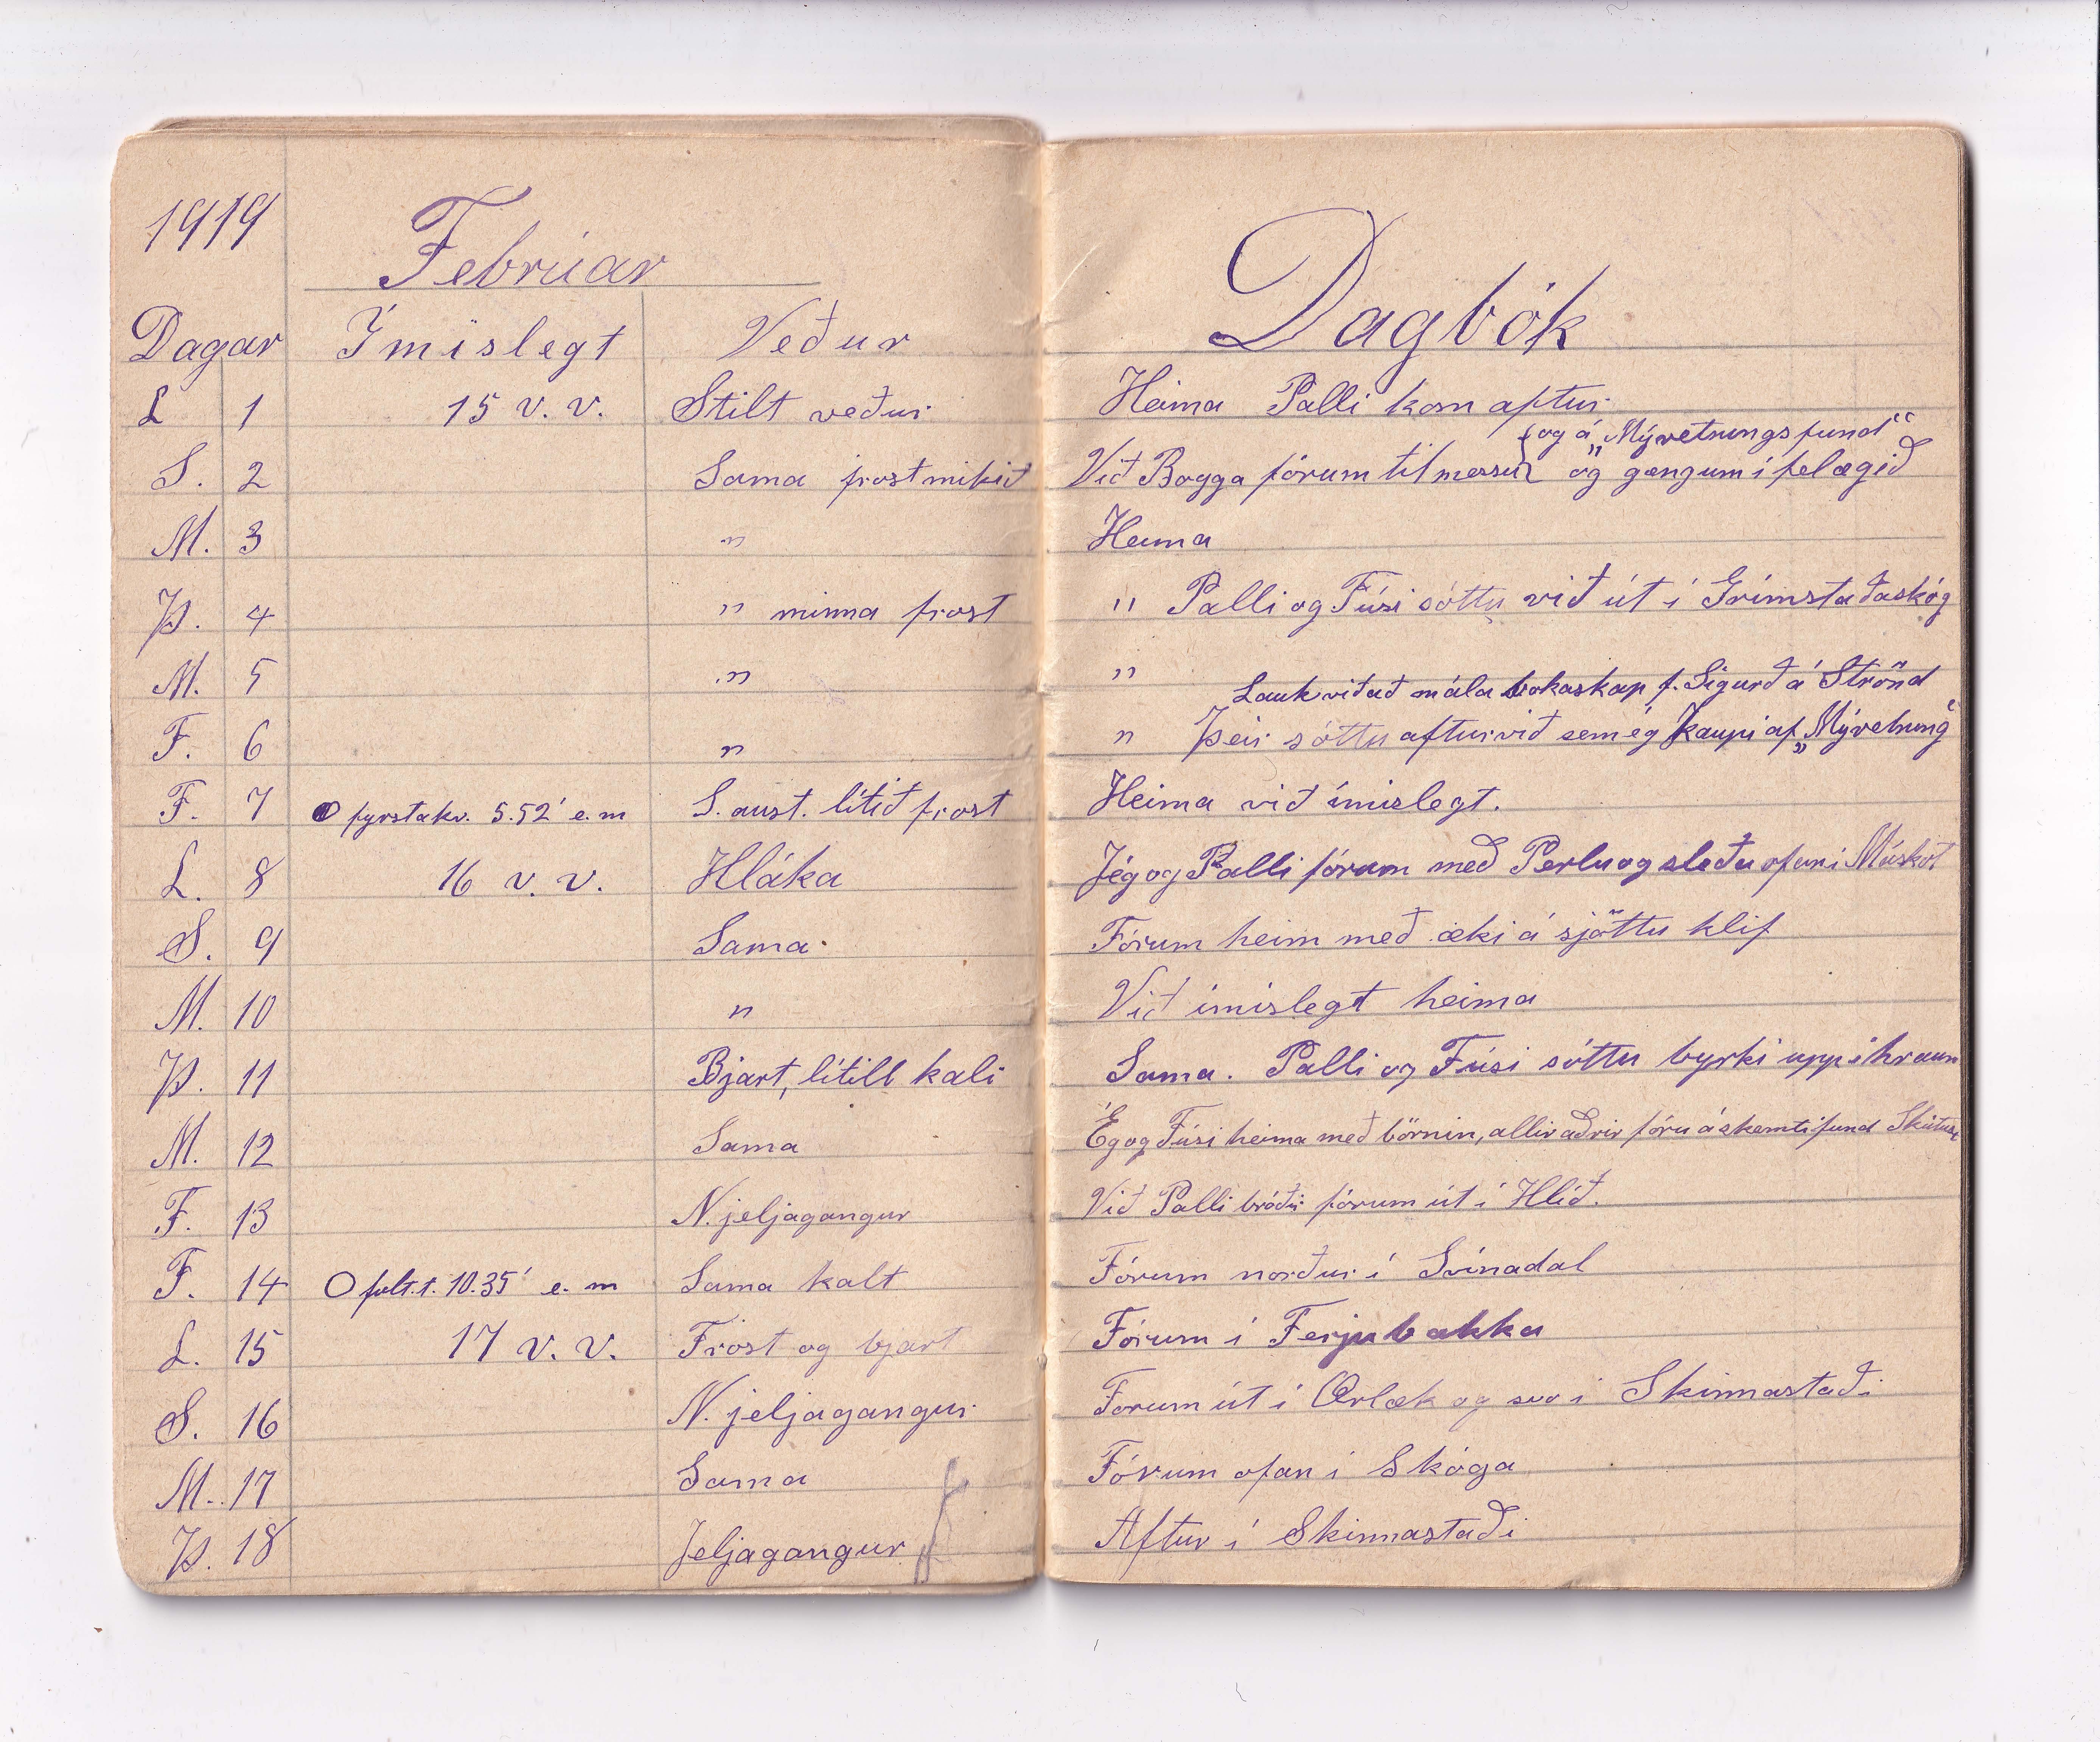 1919
Febrúar
Dagar Ímislegt Veður
L 1 15 v. v. Stilt veður
S. 2 Sama frostmikið
M. 3 "
Þ. 4 " minna frost
M. 5 "
F. 6 "
F. 7 fyrstakv. 5.52' e. m S. aust. lítið frost
L. 8 16 v. v. Hláka
S. 9 Sama
M. 10 "
Þ. 11 Bjart, lítill kali
M. 12 Sama
F. 13 N. jeljagangur
F. 14 fult.t. 10.35' e. m Sama kalt
L. 15 17 v. v. Frost og bjart
S. 16 N. jeljagangur
M. 17 Sama
Þ. 18 Jeljagangur
Dagbók
Heima Palli kom aptur
{og á „Mývetnungsfund“
Við Bogga fórum til messu og gengum í felagið
Heima
" Palli og Fúsi sóttu við út í Grímstaðaskóg
"
Lauk við að mála bokaskap f. Sigurð á Strönd
" Þeir sóttu aftur við sem ég kaupi af „Mývetning“
Heima við ímislegt.
Jég og Palli fórum með Perlu og sleða ofan í Máskot
Fórum heim með æki á sjöttu klif
Við ímislegt heima
Sama. Palli og Fúsi sóttu byrki upp í hraun
Ég og Fúsi heima með börnin, allir aðrir fóru á skemtifund
Við Palli bróðir fórum út í Hlíð.
Fórum norður í Svínadal
Fórum í Ferjubakka
Forum út í Ærlæk og svo í Skinnastaði
Fórum ofan í Skóga
Aftur í Skinnastaði